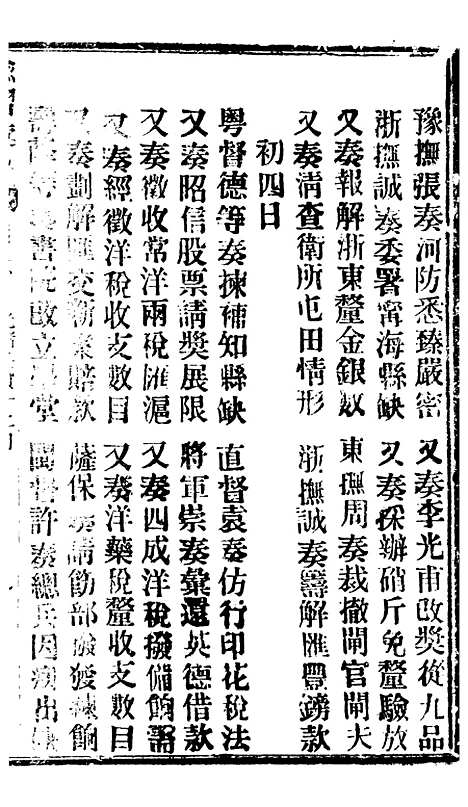 豫撫張奏河防悉臻嚴密
又奏李光甫改獎從九品
浙撫誠奏委署甯海縣缺
又奏採辦硝斤免釐驗放
又奏報解浙東釐金銀數
東撫周奏裁撤閘官閘夫
又奏淸查衛所屯田情形
浙撫誠奏籌解匯豐鎊款
初四日
粵督德等奏揀補知縣缺
直督袁奏仿行印花稅法
又奏昭信股票請獎展限
將軍崇奏彙還英德借款
又奏徵收常洋兩稅匯滬
又奏四成洋稅撥備餉需
又奏經徵洋稅收支數目
又奏洋藥稅釐收支數目
又奏劃解匯交新案賠款
薩保奏請飭部撥練餉
書院改立學堂
閩督許奏總兵因病出缺